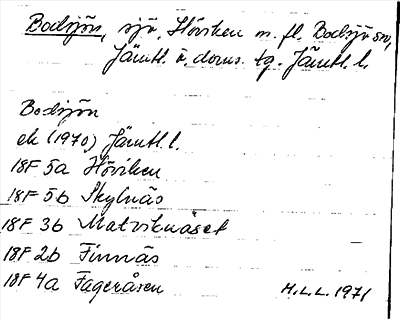 Bodsjön, sjö, Höviken m. fl. Bodsjö sn,
Jämtl. ö. doms. tg. Jämtl. l.
Bodsjön
ek (1970) Jämtl. l.
18F 5a Höviken
18F 5b Skylnäs
18F 3b Matviknäset
18F 2b Finnäs
18F 4a Fageråsen
M.L.L. 1971